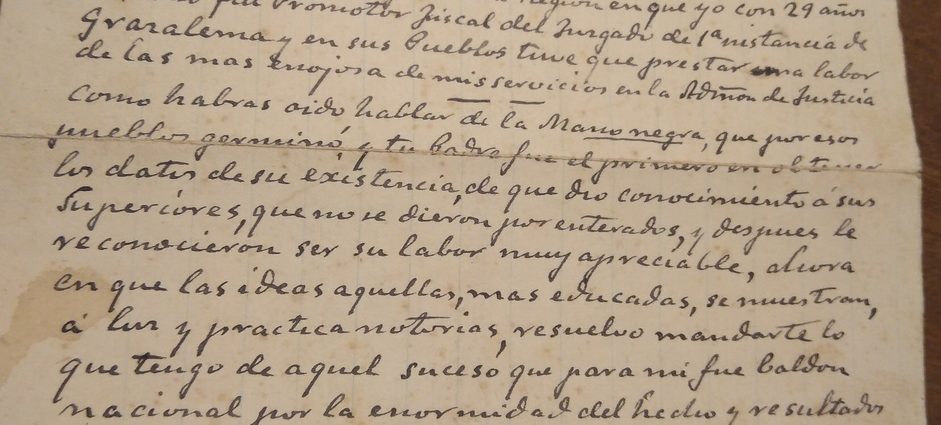 fui Promotor Fiscal del Juzgado de 1ª instancia de
región en que yo con 29 años
Grazalema y en sus Pueblos tuve que prestar una labor
de las mas enojosa de mis servicios en la Admon de Justicia
como habras oido hablar de la Mano negra, que por esos
pueblos germinó, y tu Padre fue el primero en obtener
los datos de su existencia, de que dio conocimiento á sus
Superiores, que no se dieron por enterados, y despues le
reconocieron ser su labor muy apreciable, ahora
en que las ideas aquellas, mas educadas, se muestran,
á luz y practica notorias, resuelvo mandarte lo
que tengo de aquel suceso que para mi fue baldon
nacional por la enormidad del hecho y resultados